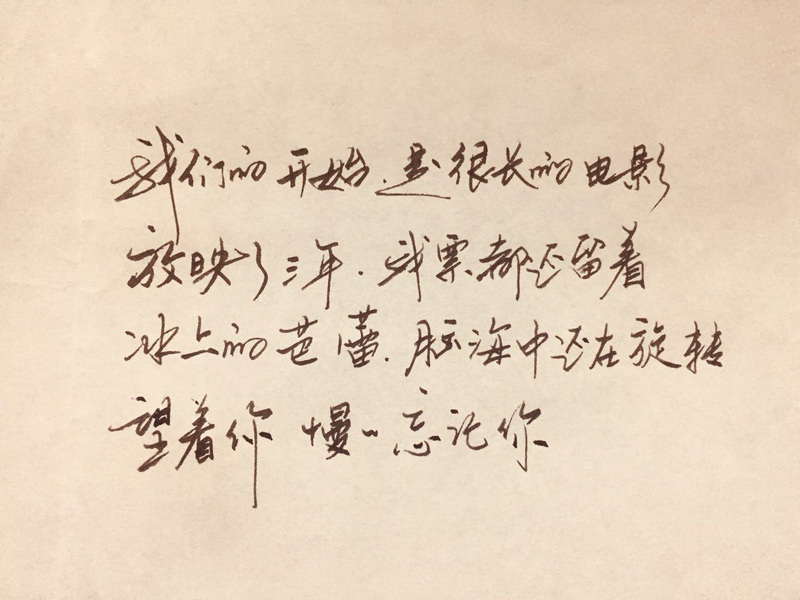 我们的开始.是很长的电影
放映了三年.我票都还留着
冰上的芭蕾.脑海中还在旋转
望着你 慢〃忘记你